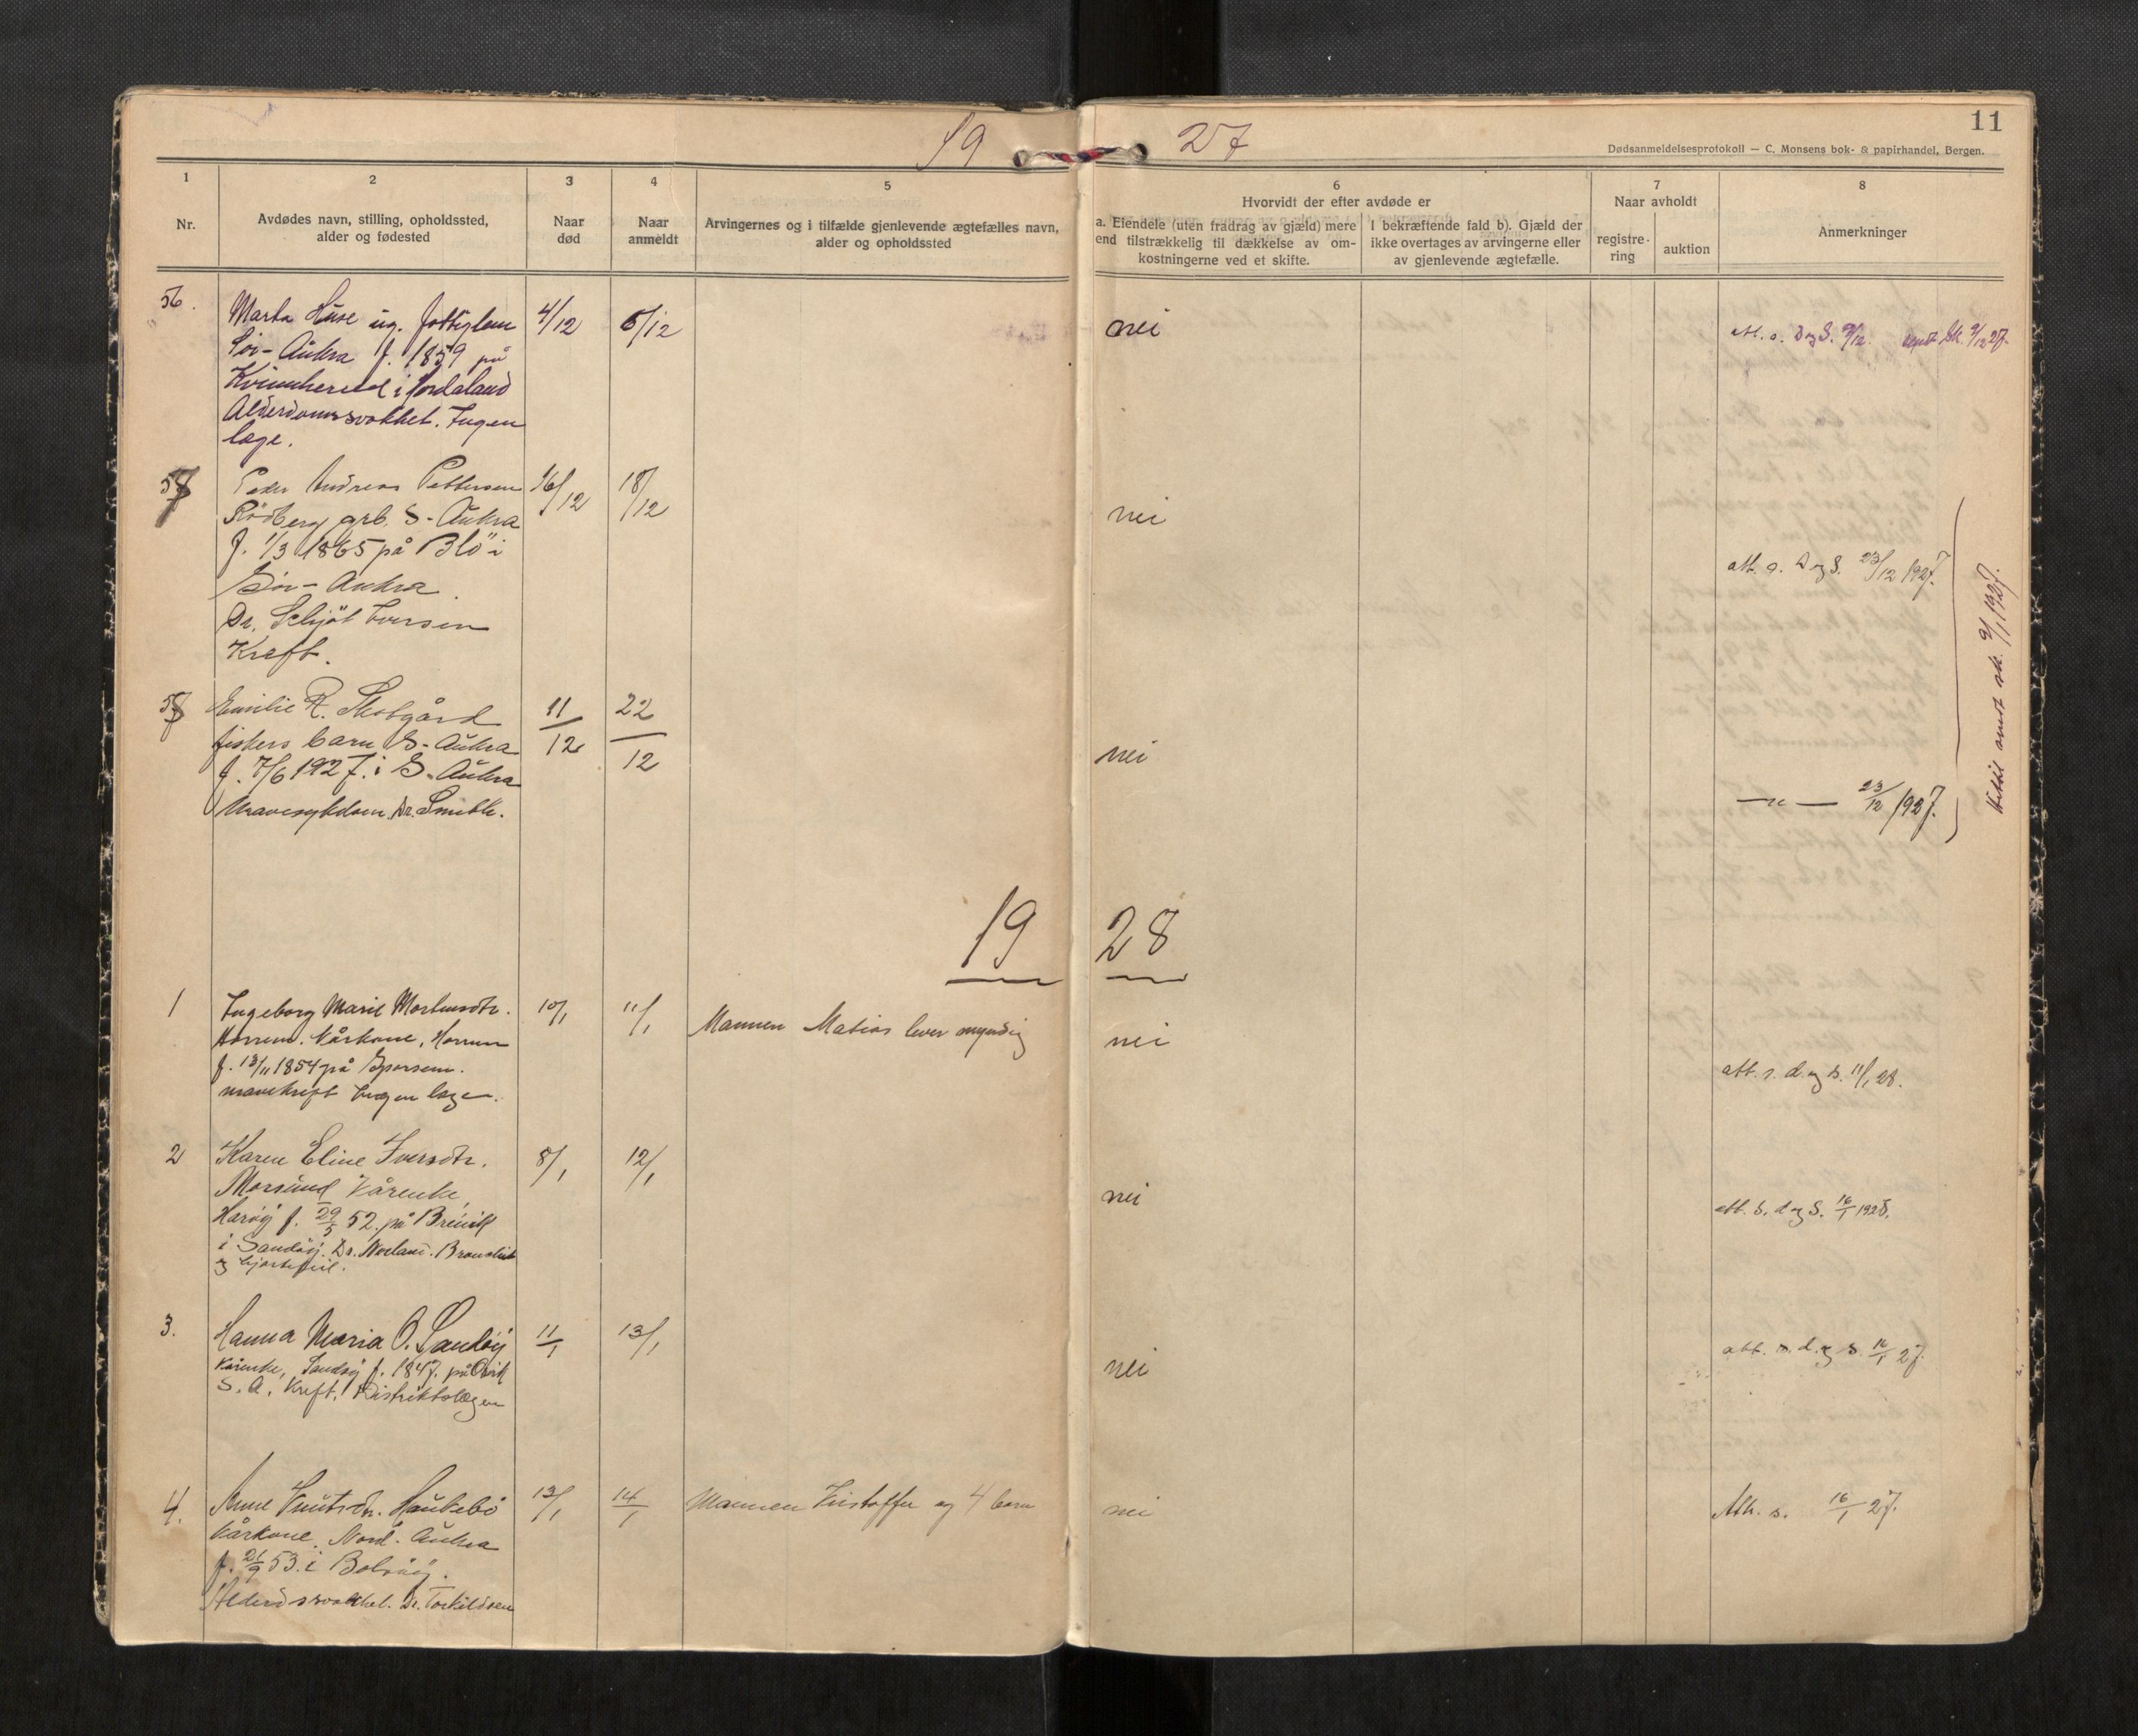 11
19 27
Dødsanmeldelsesprotokoll — C. Monsens bok- & papirhandel, Bergen.
1 2 3 4 5 6 7 8
Nr.
Avdødes navn, stilling, opholdssted,
alder og fødested
Naar
død
Naar
anmeldt
Arvingernes og i tilfælde gjenlevende ægtefælles navn,
alder og opholdssted
Hvorvidt der efter avdøde er
a. Eiendele (uten fradrag av gjæld) mere
end tilstrækkelig til dækkelse av om-
kostningerne ved et skifte.
I bekræftende fald b). Gjæld der
ikke overtages av arvingerne eller
av gjenlevende ægtefælle.
Naar avholdt
registre-
ring
auktion
Anmerkninger
56. Marta Huse ug. fattiglem 4/12 6/12 nei
Sör-Aukra f. 1859 på
Kvinnherred i Hordaland
Alderdomssvakhet. Ingen
læge.
att. s. D og S. 9/12.
57 Peder Andreas Pettersen 16/12 18/12 nei
Rödberg grb. S-Aukra
f. 1/3 1865 på Blö i
Sör-Aukra
Dr. Schjöt Iversen
Kreft.
att. s. D og S. 23/12 1927.
Emilie R. Skotgård 11/12 22/12 nei
fiskers barn S-Aukra
f. 7/6 1927. i S-Aukra
Mavesykdom. Dr. Smith.
— " — 23/12 1927.
19 28
1 Ingeborg Marie Mortensdtr. 10/1 11/1 Mannen Matias lever myndig nei
Horrem. Kårkone, Horrem
f. 13/11 1854 på
mavekreft Ingen læge.
att. s. d. og s. 11/1 28.
2 Karen Eline Iversdtr. 8/1 12/1 nei
Morsund Kårenke,
Haröy f. 29/5 52. på
i Sandöy. Dr.
og hjertefeil.
att. s. d og S. 16/1 1928.
3. Hanna Maria O. Sandöy 11/1 13/1 nei
Kårenke, Sandöy f. 1847. på
S. A. Kreft. Distriktslægen
att. s. d. og s. 16/1 27.
4. Anne Knutsdtr. Haukebö 13/1 14/1 Mannen Kristoffer og 4 barn nei
Kårkone. Nord-Aukra
f. 21/9 53. i Bolsöy.
Alderdsvakhet. Dr. Torkildsen
Att. s. 16/1 27.